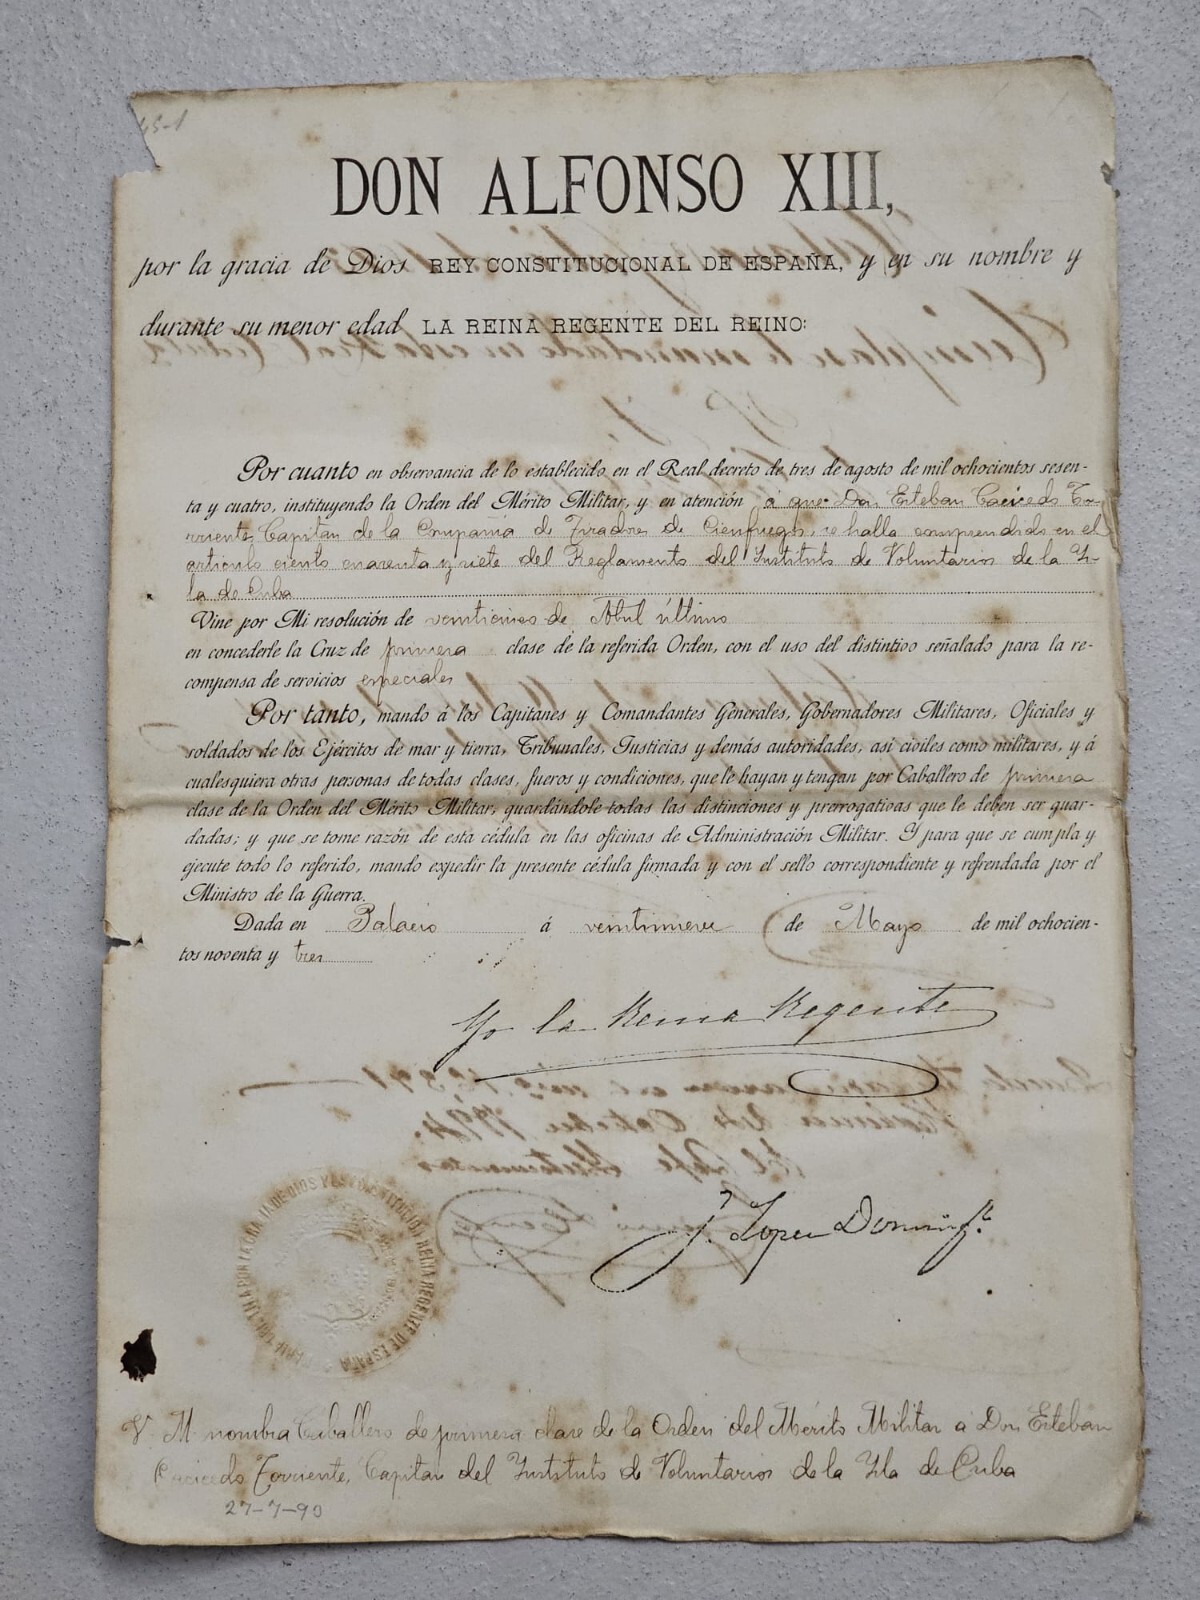 DON ALFONSO XIII,
por la gracia de Dios REY CONSTITUCIONAL DE ESPAÑA, y en su nombre y
durante su menor edad LA REINA REGENTE DEL REINO:
Por cuanto en observancia de lo establecido en el Real decreto de tres de agosto de mil ochocientos sesen-
ta y cuatro, instituyendo la Orden del Mérito Militar, y en atención á que Don Esteban Cacicedo To-
rriente, Capitan de la Compañia de Tiradores de Cienfuegos, se halla comprendido en el
articulo ciento cuarenta y siete del Reglamento del Instituto de Voluntarios de la Ys-
la de Cuba
Vine por Mi resolución de veinticinco de Abril último
en concederle la Cruz de primera clase de la referida Orden, con el uso del distintivo señalado para la re-
compensa de servicios especiales
Por tanto, mando á los Capitanes y Comandantes Generales, Gobernadores Militares, Oficiales y
soldados de los Ejércitos de mar y tierra, Tribunales, Justicias y demás autoridades, asi civiles como militares, y á
cualesquiera otras personas de todas clases, fueros y condiciones, que le hayan y tengan por Caballero de primera
clase de la Orden del Mérito Militar, guardándole todas las distinciones y prerrogativas que le deben ser guar-
dadas; y que se tome razón de esta cédula en las oficinas de Administración Militar. Y para que se cumpla y
ejecute todo lo referido, mando expedir la presente cédula firmada y con el sello correspondiente y refrendada por el
Ministro de la Guerra.
Dada en Palacio á veintinueve de Mayo de mil ochocien-
tos noventa y tres
Yo la Reina Regente
J. Lopez Doming.
POR LA GRACIA DE DIOS Y LA CONSTITUCION REINA REGENTE DE ESPAÑA
V. M. nombra Caballero de primera clase de la Orden del Mérito Militar á Don Esteban
Cacicedo Torriente, Capitan del Instituto de Voluntarios de la Ysla de Cuba
27-7-93